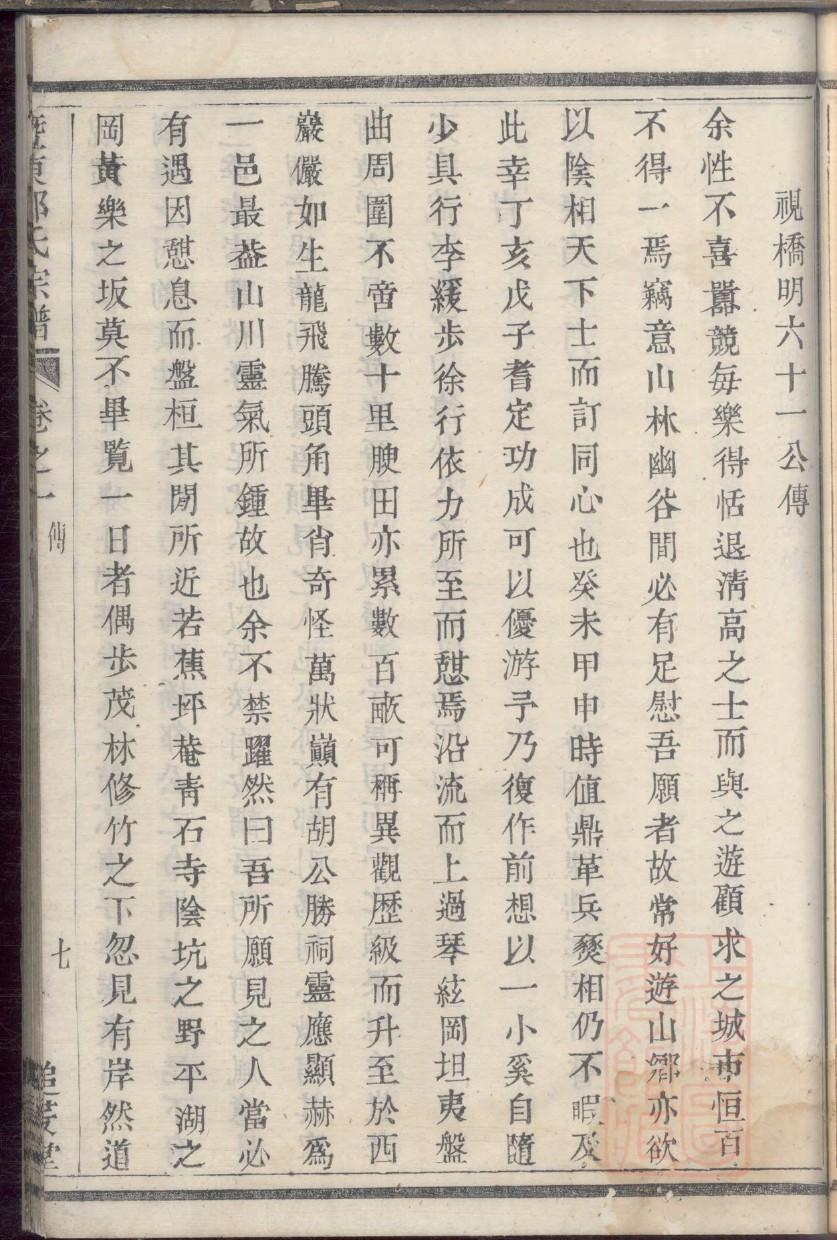 視橋明六十一公傳
余性不喜囂競每樂得恬退淸高之士而與之遊顧求之城市恒百
不得一焉竊意山林幽谷間必有足慰吾願者故常好遊山鄉亦欲
以陰相天下士而訂同心也癸未甲申時值鼎革兵燹相仍不暇及
此幸丁亥戊子耆定功成可以優游予乃復作前想以一小奚自隨
少具行李緩步徐行依力所至而憇焉沿流而上過琴絃岡坦夷盤
曲周圍不啻數十里腴田亦累數百畝可稱異觀歷級而升至於西
巖儼如生龍飛騰頭角畢肖奇怪萬狀巔有胡公勝祠靈應顯赫爲
一邑最葢山川靈氣所鍾故也余不禁躍然曰吾所願見之人當必
有遇因憇息而盤桓其閒所近若蕉坪菴靑石寺陰坑之野平湖之
岡黃樂之坂莫不畢覧一日者偶步茂林修竹之下忽見有岸然道
氏宗譜 卷之一 傳 七